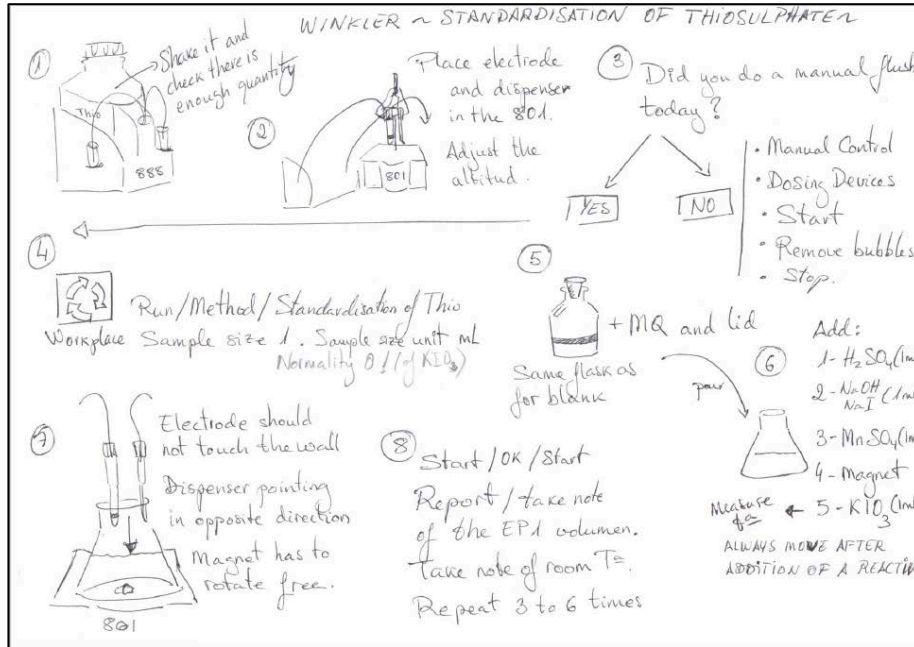 WINKLER ~ STANDARDISATION OF THIOSULPHATE ~
1
Shake it and
check there is
enough quantity
Thio
888
2
Place electrode
and dispenser
in the 801.
Adjust the
altitud.
801
3
Did you do a manual flush
today?
YES
NO
• Manual Control
• Dosing Devices
• Start
• Remove bubbles
• Stop.
4
Run/Method/Standardisation of Thio
Workplace Sample size 1. Sample size unit mL
Normality 0.1 (of KIO3)
5
+ MQ and lid
Same flask as
for blank
pour
6
Add:
1- H2SO4 (1m
2- NaOH
NaI (1m
3- MnSO4 (1m
4- Magnet
5- KIO3 (1m
Measure
ALWAYS MOVE AFTER
ADDITION OF A REACTIV
7
Electrode should
not touch the wall
Dispenser pointing
in opposite direction
Magnet has to
rotate free.
801
8
Start/OK/Start
Report/take note
of the EP1 volumen.
take note of room Tª.
Repeat 3 to 6 times